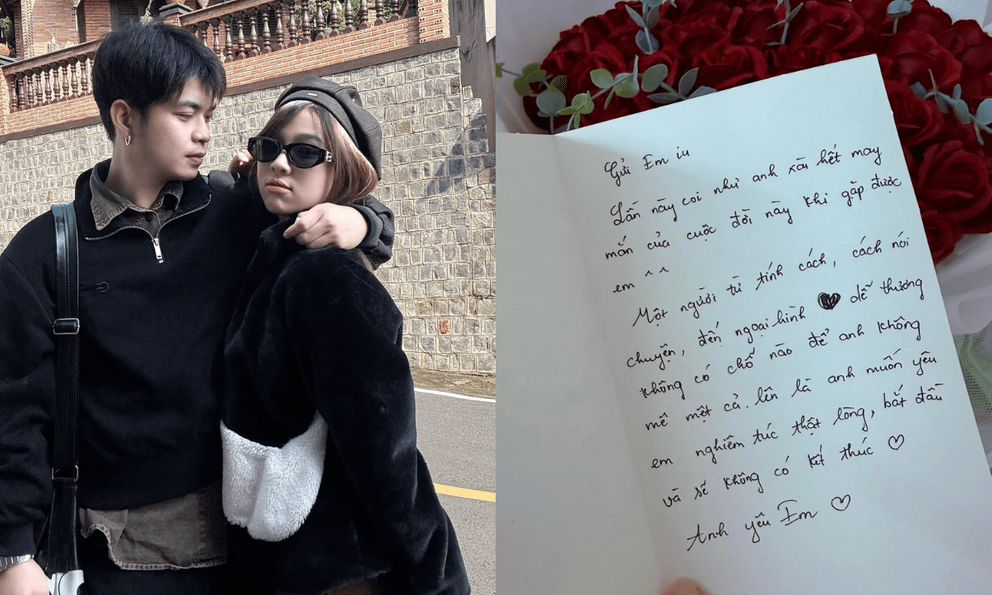 Gửi Em iu
Lần này coi như anh xài hết may
mắn của cuộc đời này khi gặp được
em ^ ^
Một người từ tính cách, cách nói
chuyện, đến ngoại hình dễ thương
không có chỗ nào để anh không
mê mệt cả. lên là anh muốn yêu
em nghiêm túc thật lòng, bắt đầu
và sẽ không có kết thúc ♡
Anh yêu Em ♡